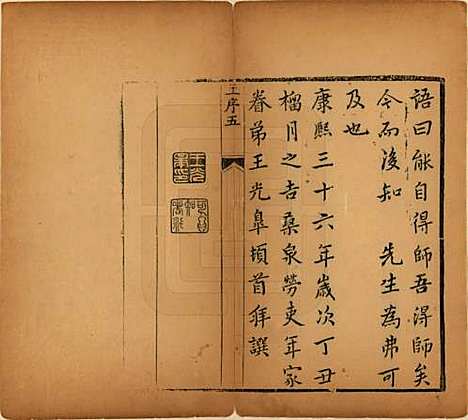 語曰能自得師吾得師矣
今而後知　先生為弗可
及也
康熙三十六年歲次丁丑
榴月之吉桑泉勞吏年家
眷弟王光臯頓首拜譔
王序五